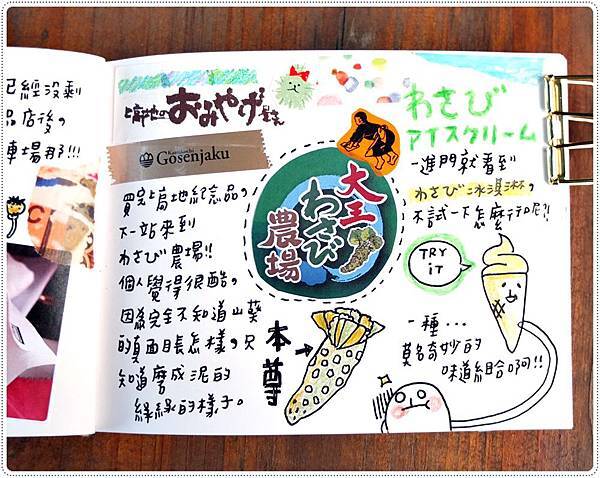 已經沒剩
品店後。
車場那!!!
上高地の おみやげ屋さん
Kamikochi
Gosenjaku
買完上高地紀念品。
下一站來到
わさび農場!!
個人覺得很酷。
因為完全不知道山葵
的真面目長怎樣。只
知道磨成泥的
綠綠的樣子。
大王
わさび
農場
本尊
わさび
アイスクリーム
一進門就看到
わさび冰淇淋。
不試一下怎麼行呢?!
TRY
iT
一種...
莫名奇妙的
味道組合啊!!